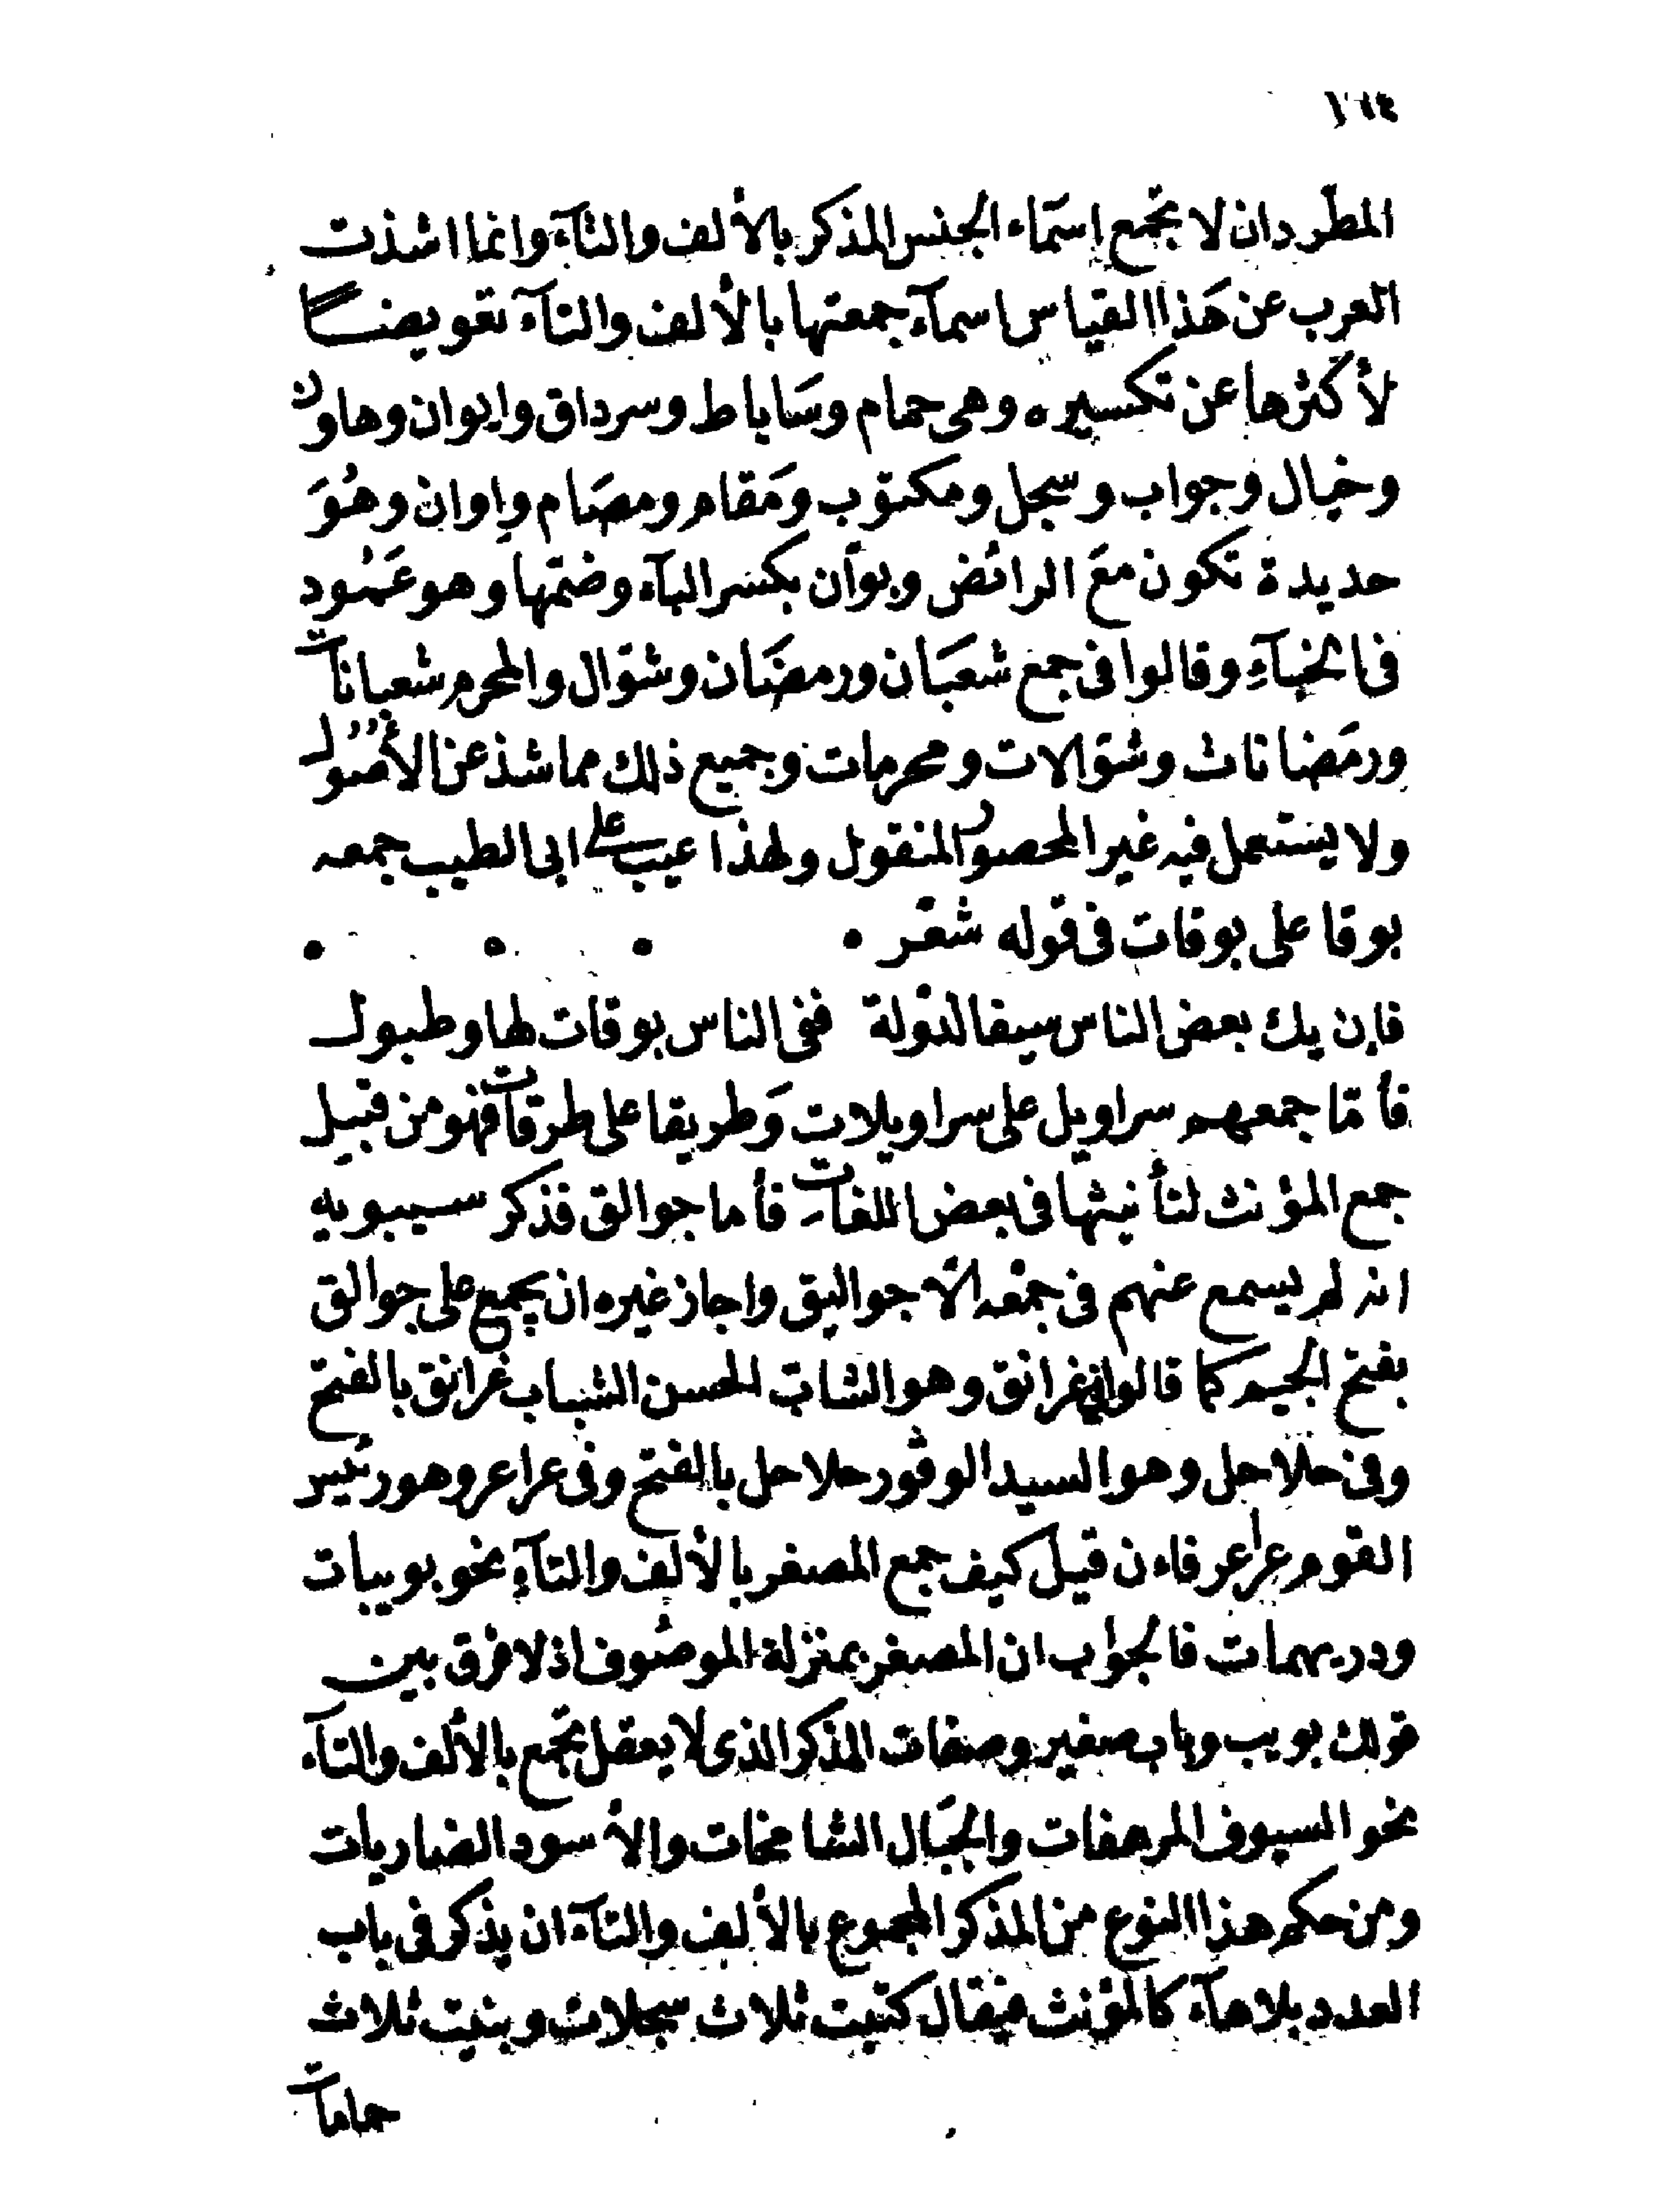 ١٦٤
المطرد ان لا تجمع إسمَاء الجنس المذكر بالألف والتآء وانما اشذت
العرب عن هَذا القياس اسمآء جمعتها بالألف والتآء تعويضًا
لأكثرها عن تكسيره وهى حمام وسَاباط وسرداق وايوان وهاون
وخيال وجواب وسجل ومكتوب ومَقام ومصَام وإوان وهُوَ
حديدة تكون معَ الرائض وبوأن بكسر البآء وضمّها وهو عَمُود
فى الخبآءِ وقالوا فى جمع شعبَان ورمضَان وشوّال والمحرم شعبانات
ورمَضانات وشوّالات ومحرمات وجميع ذلك مما شذ عن الأصُول
ولا يستعمل فيه غير المحصور المنقول ولهذا عيب على ابى الطيب جمعه
بوقا على بوقات فى قوله شعر
فإن يك بعض الناس سيفا لدولة ففى الناس بوقات لها وطبول
فأمّا جمعهم سراويل على سراويلات وَطريقا على طرقات فهو من قبيل
جمع المؤنث لتأنيثها فى بعض اللغات فأما جوالق فذكر سيبويه
انه لم يسمع عنهم فى جمْعه الّا جواليق واجاز غيره ان يجمع على جوالق
بفتح الجيم كما قالوا فى غرانق وهو الشابّ الحسن الشباب غرانق بالفتح
وفى حلاحل وهو السيد الوقور حلاحل بالفتح وفى عراعر وهو رئيس
القوم عراعر فاءن قيل كيف جمع المصغر بالألف والتآءِ نحو بويبات
ودريهمات فالجواب ان المصغر بمنزلة الموصُوف اذ لا فرق بين
قولك بويب وباب صغير وصفات المذكر الذى لا يعقل تجمع بالألف والتآء
نحو السيوف المرهفات والجبَال الشامخات والأسود الضاريات
ومن حكم هذا النوع من المذكر المجموع بالألف والتآء ان يذكر فى باب
العدد بلا هآء كالمؤنث فيقال كتبت ثلاث سجلات وبنيت ثلاث
حامات